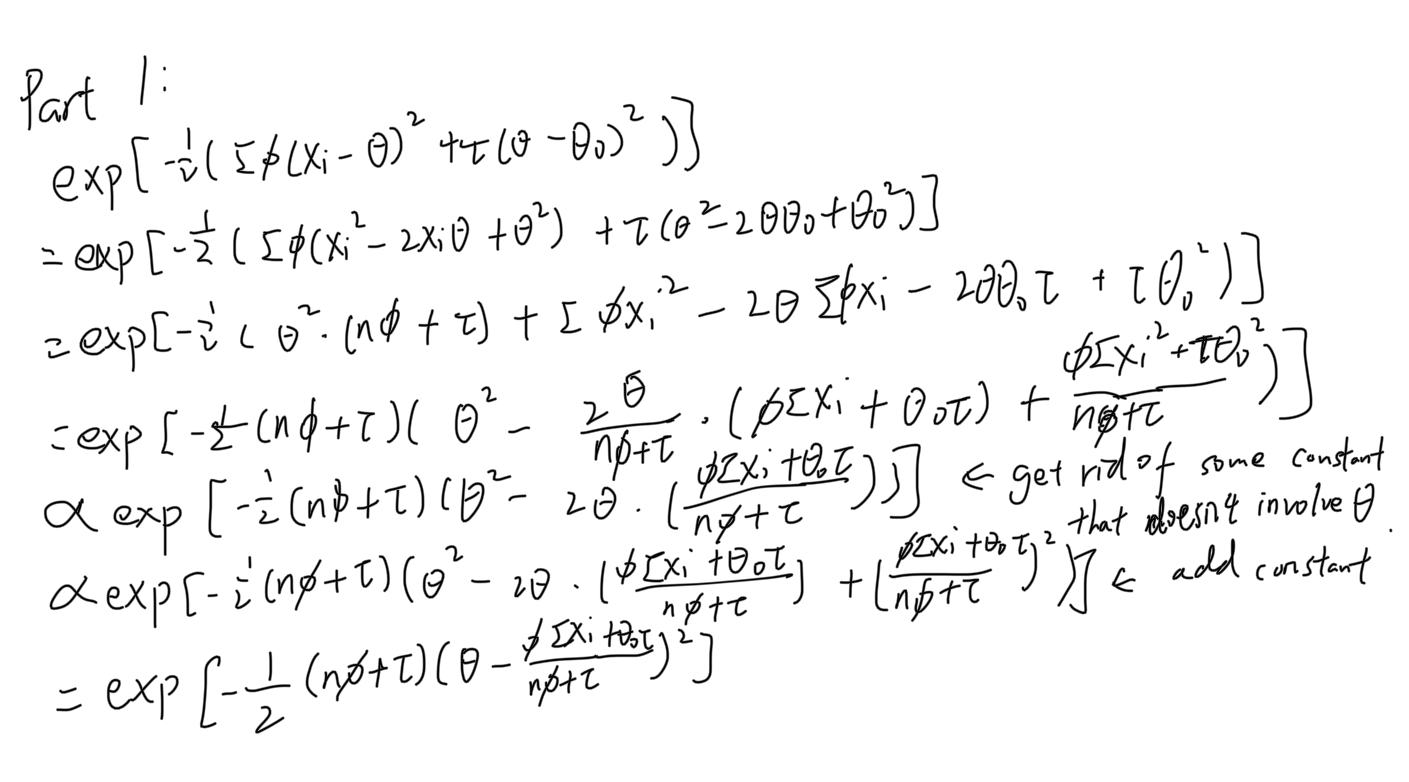 Part 1:
exp[-½(Σϕ(xi-θ)² +τ(θ-θ₀)²)]
= exp[-½(Σϕ(xi²-2xiθ+θ²) +τ(θ²-2θθ₀+θ₀²)]
= exp[-½(θ²·(nϕ+τ)+Σϕxi²-2θΣϕxi-2θθ₀τ+τθ₀²)]
= exp[-½(nϕ+τ)(θ²-2θ/(nϕ+τ)·(ϕΣxi+θ₀τ)+(ϕΣxi²+τθ₀²)/(nϕ+τ))]
∝ exp[-½(nϕ+τ)(θ²-2θ·((ϕΣxi+θ₀τ)/(nϕ+τ)))] ← get rid of some constant
that doesn't involve θ.
∝ exp[-½(nϕ+τ)(θ²-2θ·((ϕΣxi+θ₀τ)/(nϕ+τ))+((ϕΣxi+θ₀τ)/(nϕ+τ))²)] ← add constant
= exp[-½(nϕ+τ)(θ-(ϕΣxi+θ₀τ)/(nϕ+τ))²]